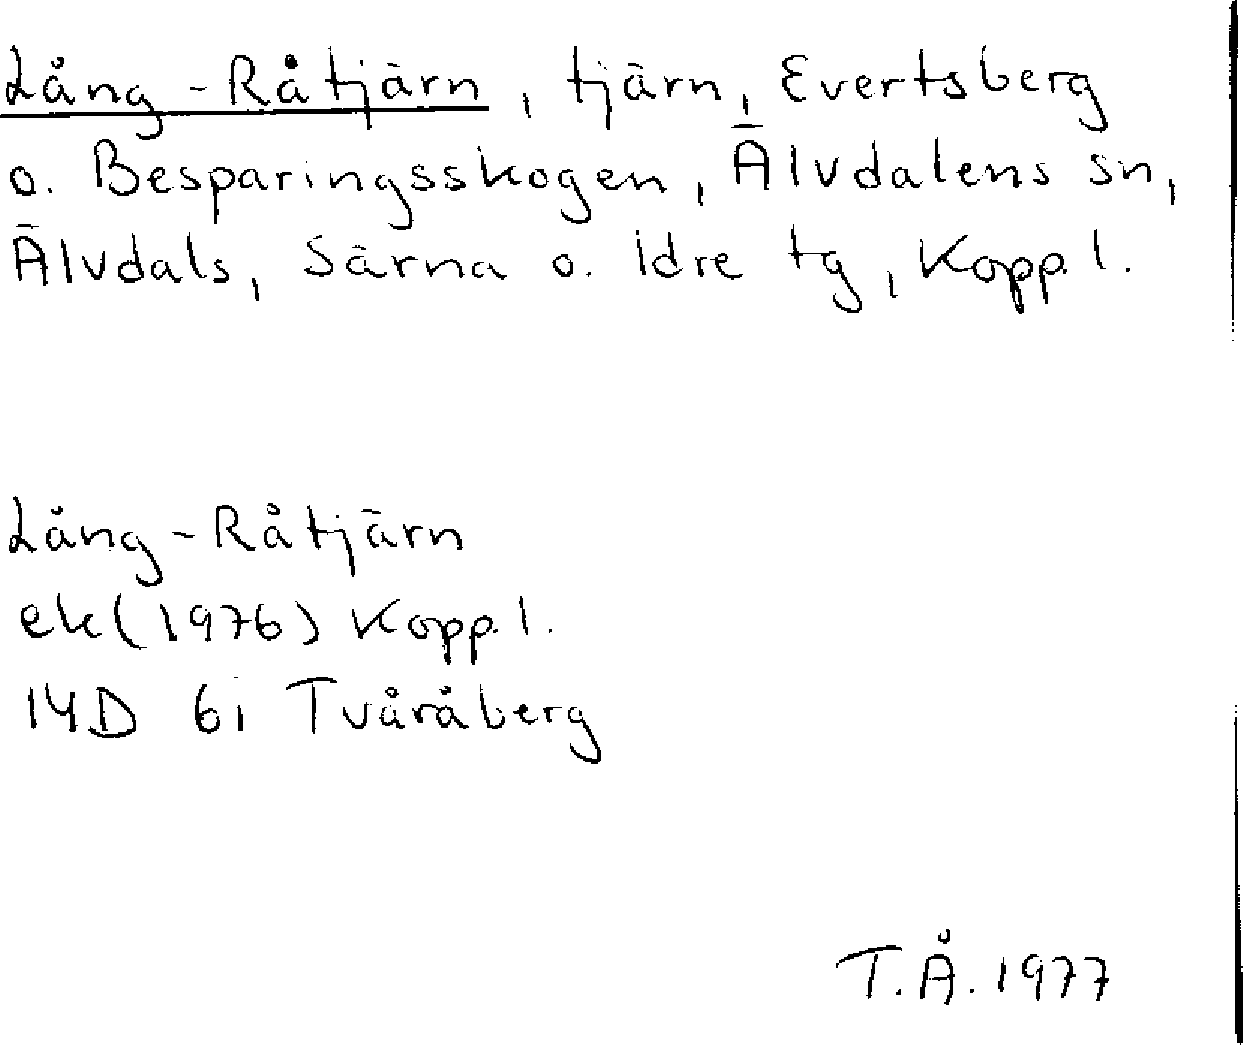 Lång-Råtjärn, tjärn, Evertsberg
o. Besparingsskogen, Älvdalens sn,
Älvdals, Särna o. Idre tg, Kopp.l.
Lång-Råtjärn
ek(1976) Kopp.l.
14D 6i Tvåråberg
T.Å. 1977